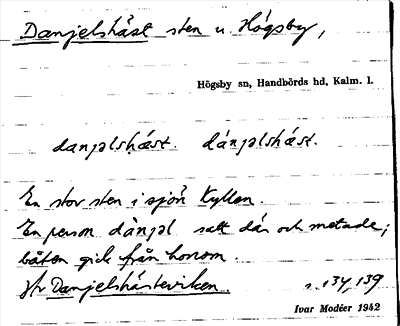 Danjelshäst sten u. Högsby,
Högsby sn, Handbörds hd, Kalm. l.
danjəlshæst. dánjəlshæst.
En stor sten i sjön Kyllen
En person dànjəl satt där och metade;
båten gick från honom.
jfr Danjelshästeviken. s. 134, 139
Ivar Modéer 1942